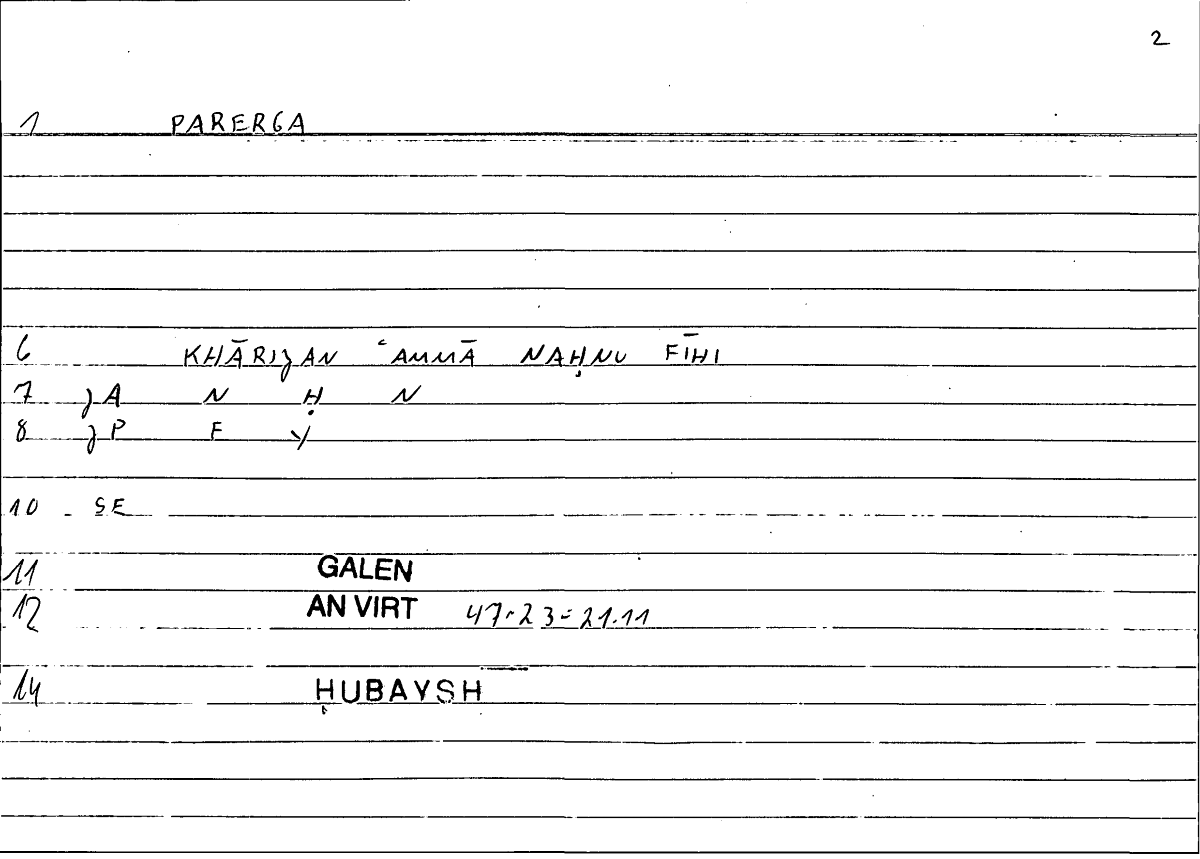 2
1 PARERGA
6 KHĀRIJAN ʿAMMĀ NAḤNU FĪHI
7 JA N Ḥ N
8 JP F Y
10 SE
11 GALEN
12 AN VIRT 47.23=21.11
14 ḤUBAYSH